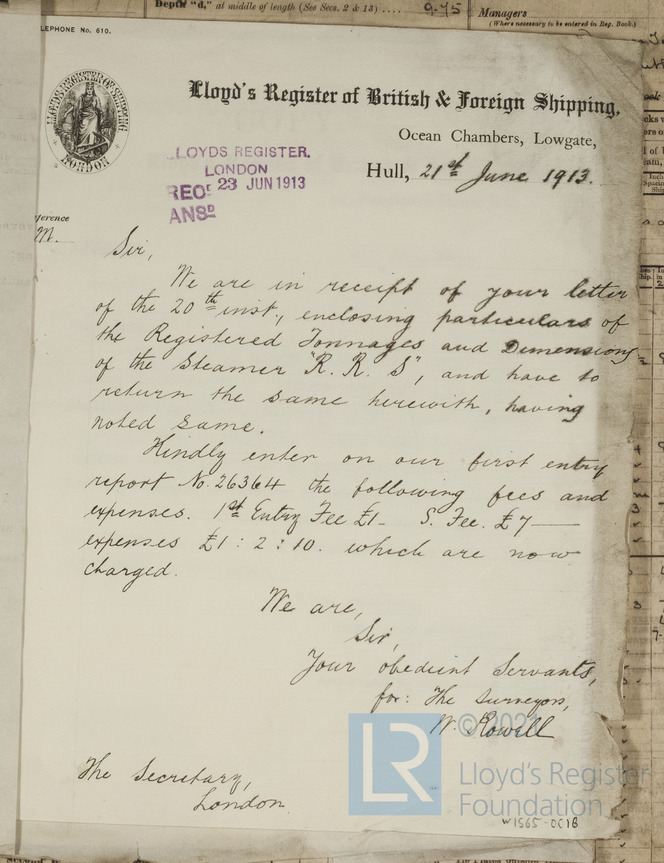 Depth "d," at middle of length (See Secs. 2 & 13) .... 9.45
Managers
(Where necessary to be entered in Reg. Book.)
LEPHONE No. 610.
LLOYD'S REGISTER OF SHIPPING
LONDON
Lloyd's Register of British & Foreign Shipping,
Ocean Chambers, Lowgate,
Hull, 21st June 1913.
LLOYDS REGISTER.
LONDON
RECD 23 JUN 1913
ANSD
ference
M.
Sir,
We are in receipt of your letter
of the 20th inst, enclosing particulars of
the Registered Tonnages and Dimensions
of the Steamer "R. R. S", and have to
return the same herewith, having
noted same.
Kindly enter on our first entry
report No. 26364 the following fees and
expenses. 1st Entry Fee £1- S. Fee. £7—
expenses £1 : 2 : 10. which are now
charged.
We are,
Sir,
Your obedient Servants,
for: The Surveyors,
W. Rowell
The Secretary,
London.
© 2021
LR
Lloyd's Register
Foundation
W1565-0018